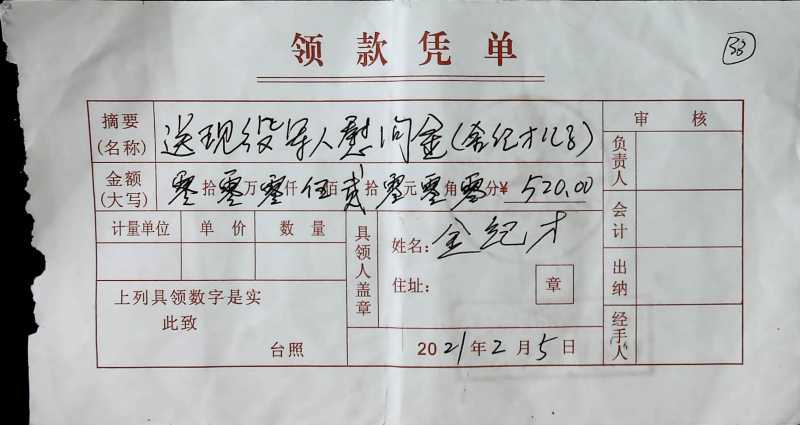 领款凭单
33
摘要
(名称)
送现役军人慰问金(金纪才儿子)
审 核
金额
(大写)
零拾零万零仟伍佰贰拾零元零角零分¥ 520.00
负责人
计量单位 单价 数量
具领人盖章
姓名: 全纪才
住址:
章
会计
出纳
上列具领数字是实
此致
台照
2021年2月5日
经手人